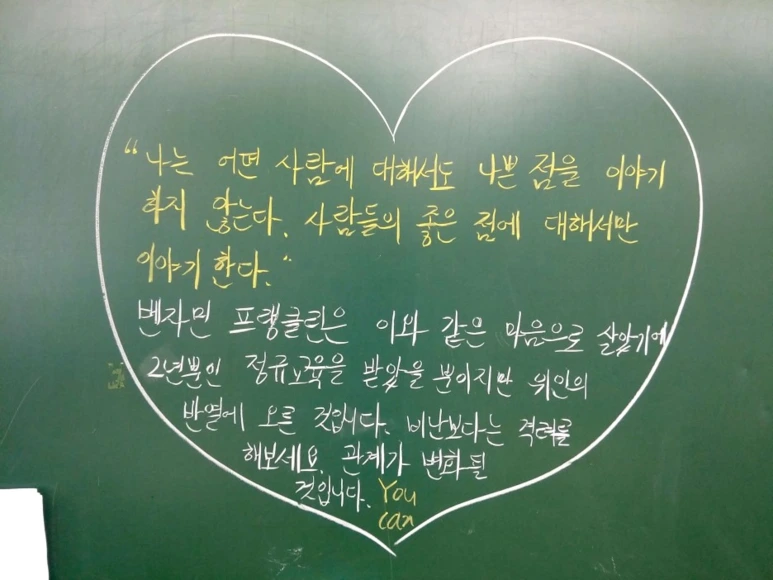 “나는 어떤 사람에 대해서도 나쁜 점을 이야기
하지 않는다. 사람들의 좋은 점에 대해서만
이야기 한다.“
벤자민 프랭클린은 이와 같은 마음으로 살았기에
2년뿐인 정규교육을 받았을 뿐이지만 위인의
반열에 오른 것입니다. 비난보다는 격려를
해보세요. 관계가 변화될
것입니다. You
can